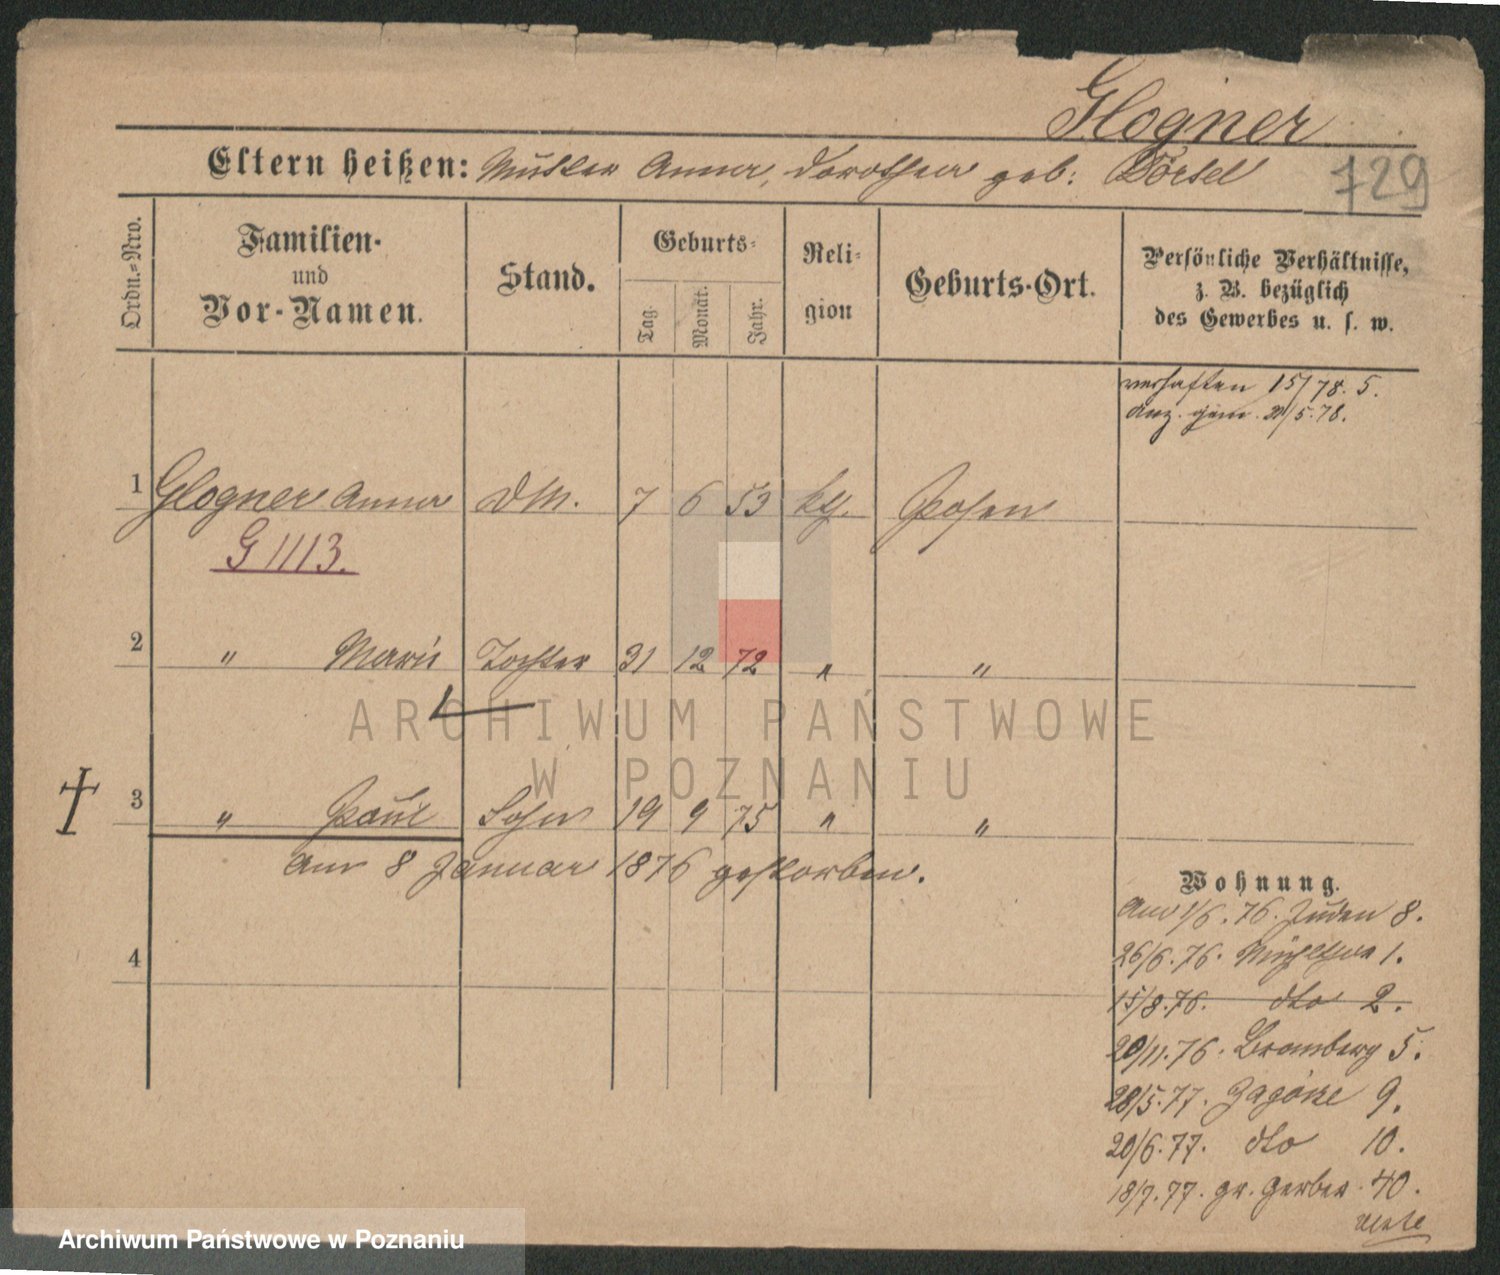 Glogner
729
Eltern heißen: Mutter Anna, Dorothea geb: Börsel
Ordn.=Nro.
Familien-
und
Vor-Namen.
Stand.
Geburts-
Tag.
Monat.
Jahr.
Reli-
gion
Geburts-Ort.
Persönliche Verhältnisse,
z. B. bezüglich
des Gewerbes u. s. w.
verhaften 15/78. 5.
Anz. gem. /5.78.
1 Glogner Anna DM. 7 6 53 kth. Posen
G 1113.
2 " Marie Tochter 31 12 72 " "
3 " Paul Sohn 19 9 75 " "
am 8 Januar 1876 gestorben.
4
Wohnung.
Am 1/6. 76. Juden 8.
26/6. 76. 1.
15/8.76. dto 2.
20/11.76. Bromberg 5.
28/5.77. Zagórze 9.
20/6.77. dto 10.
18/7.77. gr. Gerber 40.
ARCHIWUM PAŃSTWOWE
W POZNANIU
Archiwum Państwowe w Poznaniu